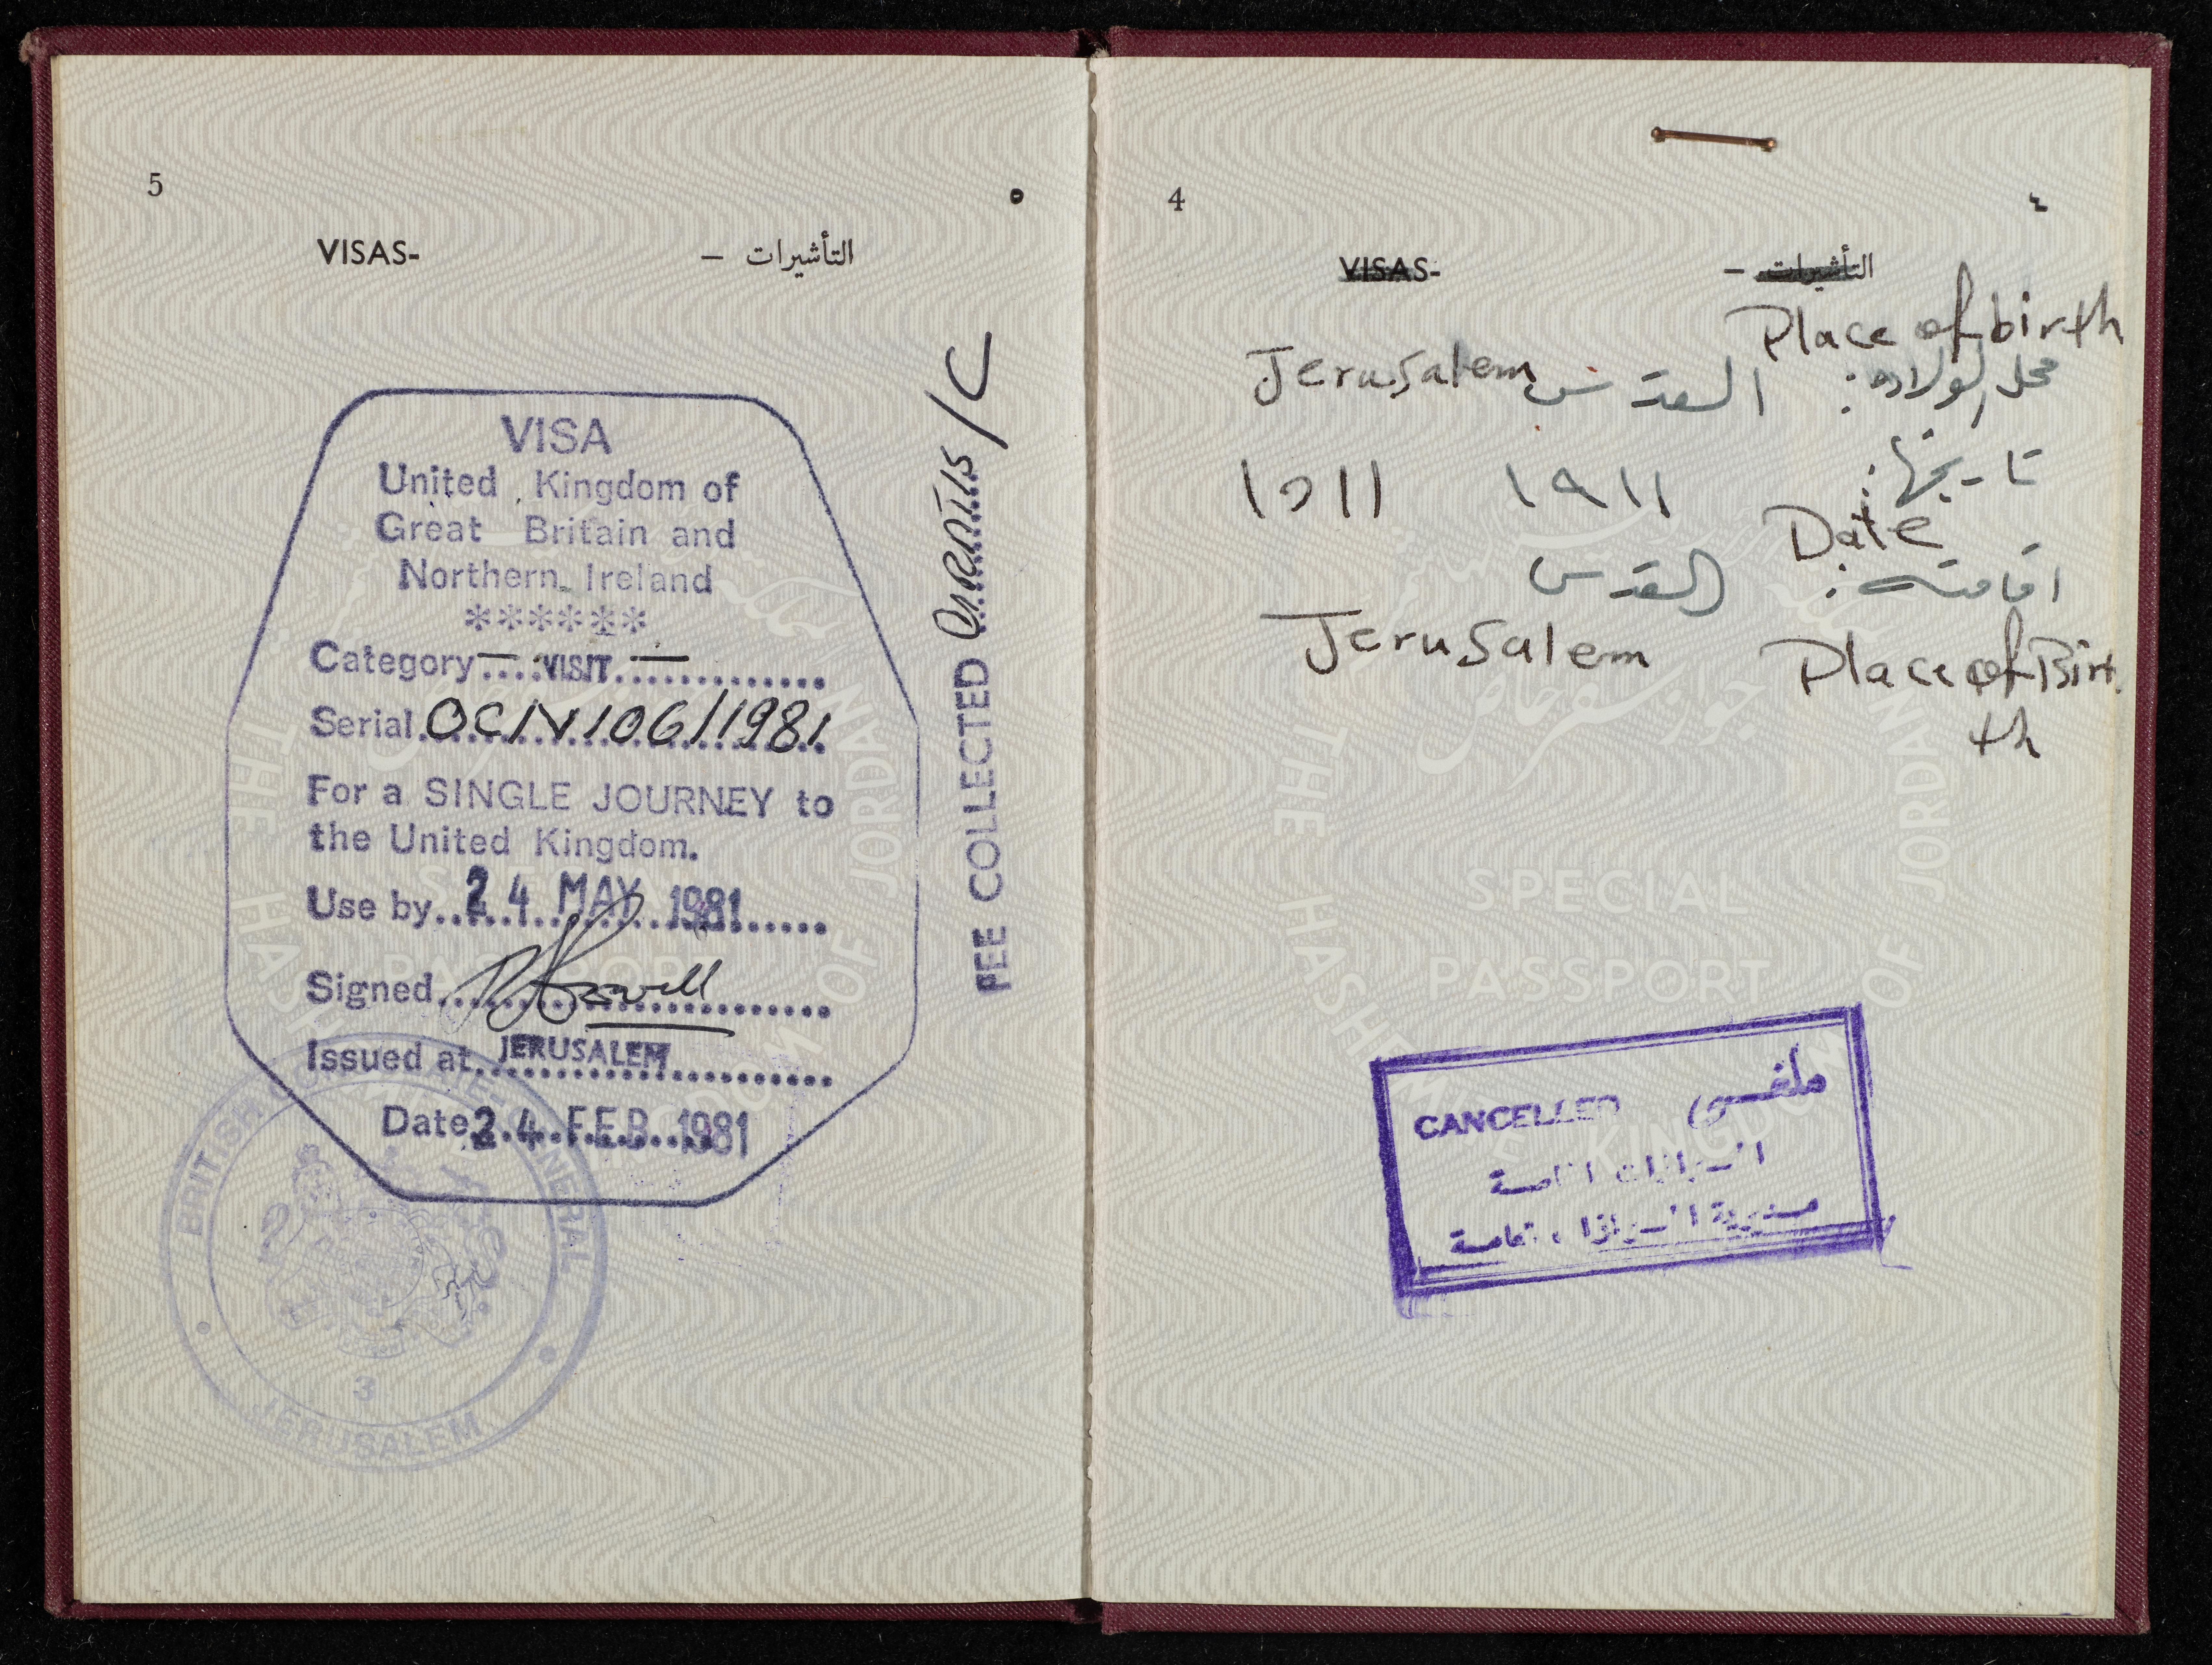 5 ٥
VISAS- التأشيرات –
VISA
United Kingdom of
Great Britain and
Northern Ireland
******
Category — VISIT —
Serial OC/V/106/1981
For a SINGLE JOURNEY to
the United Kingdom.
Use by 24 MAY 1981
Signed
Issued at JERUSALEM
Date 24 FEB 1981
FEE COLLECTED GRATIS/C
BRITISH CONSULATE-GENERAL
3
JERUSALEM
THE HASHEMITE KINGDOM OF JORDAN
SPECIAL
PASSPORT
4 ٤
VISAS- التأشيرات –
Place of birth
Jerusalem القدس محل الولادة:
1911 ١٩١١ تاريخها:
Date
القدس اقامته:
Jerusalem Place of Birt
th
جواز سفر خاص
THE HASHEMITE KINGDOM OF JORDAN
SPECIAL
PASSPORT
CANCELLED ملغى